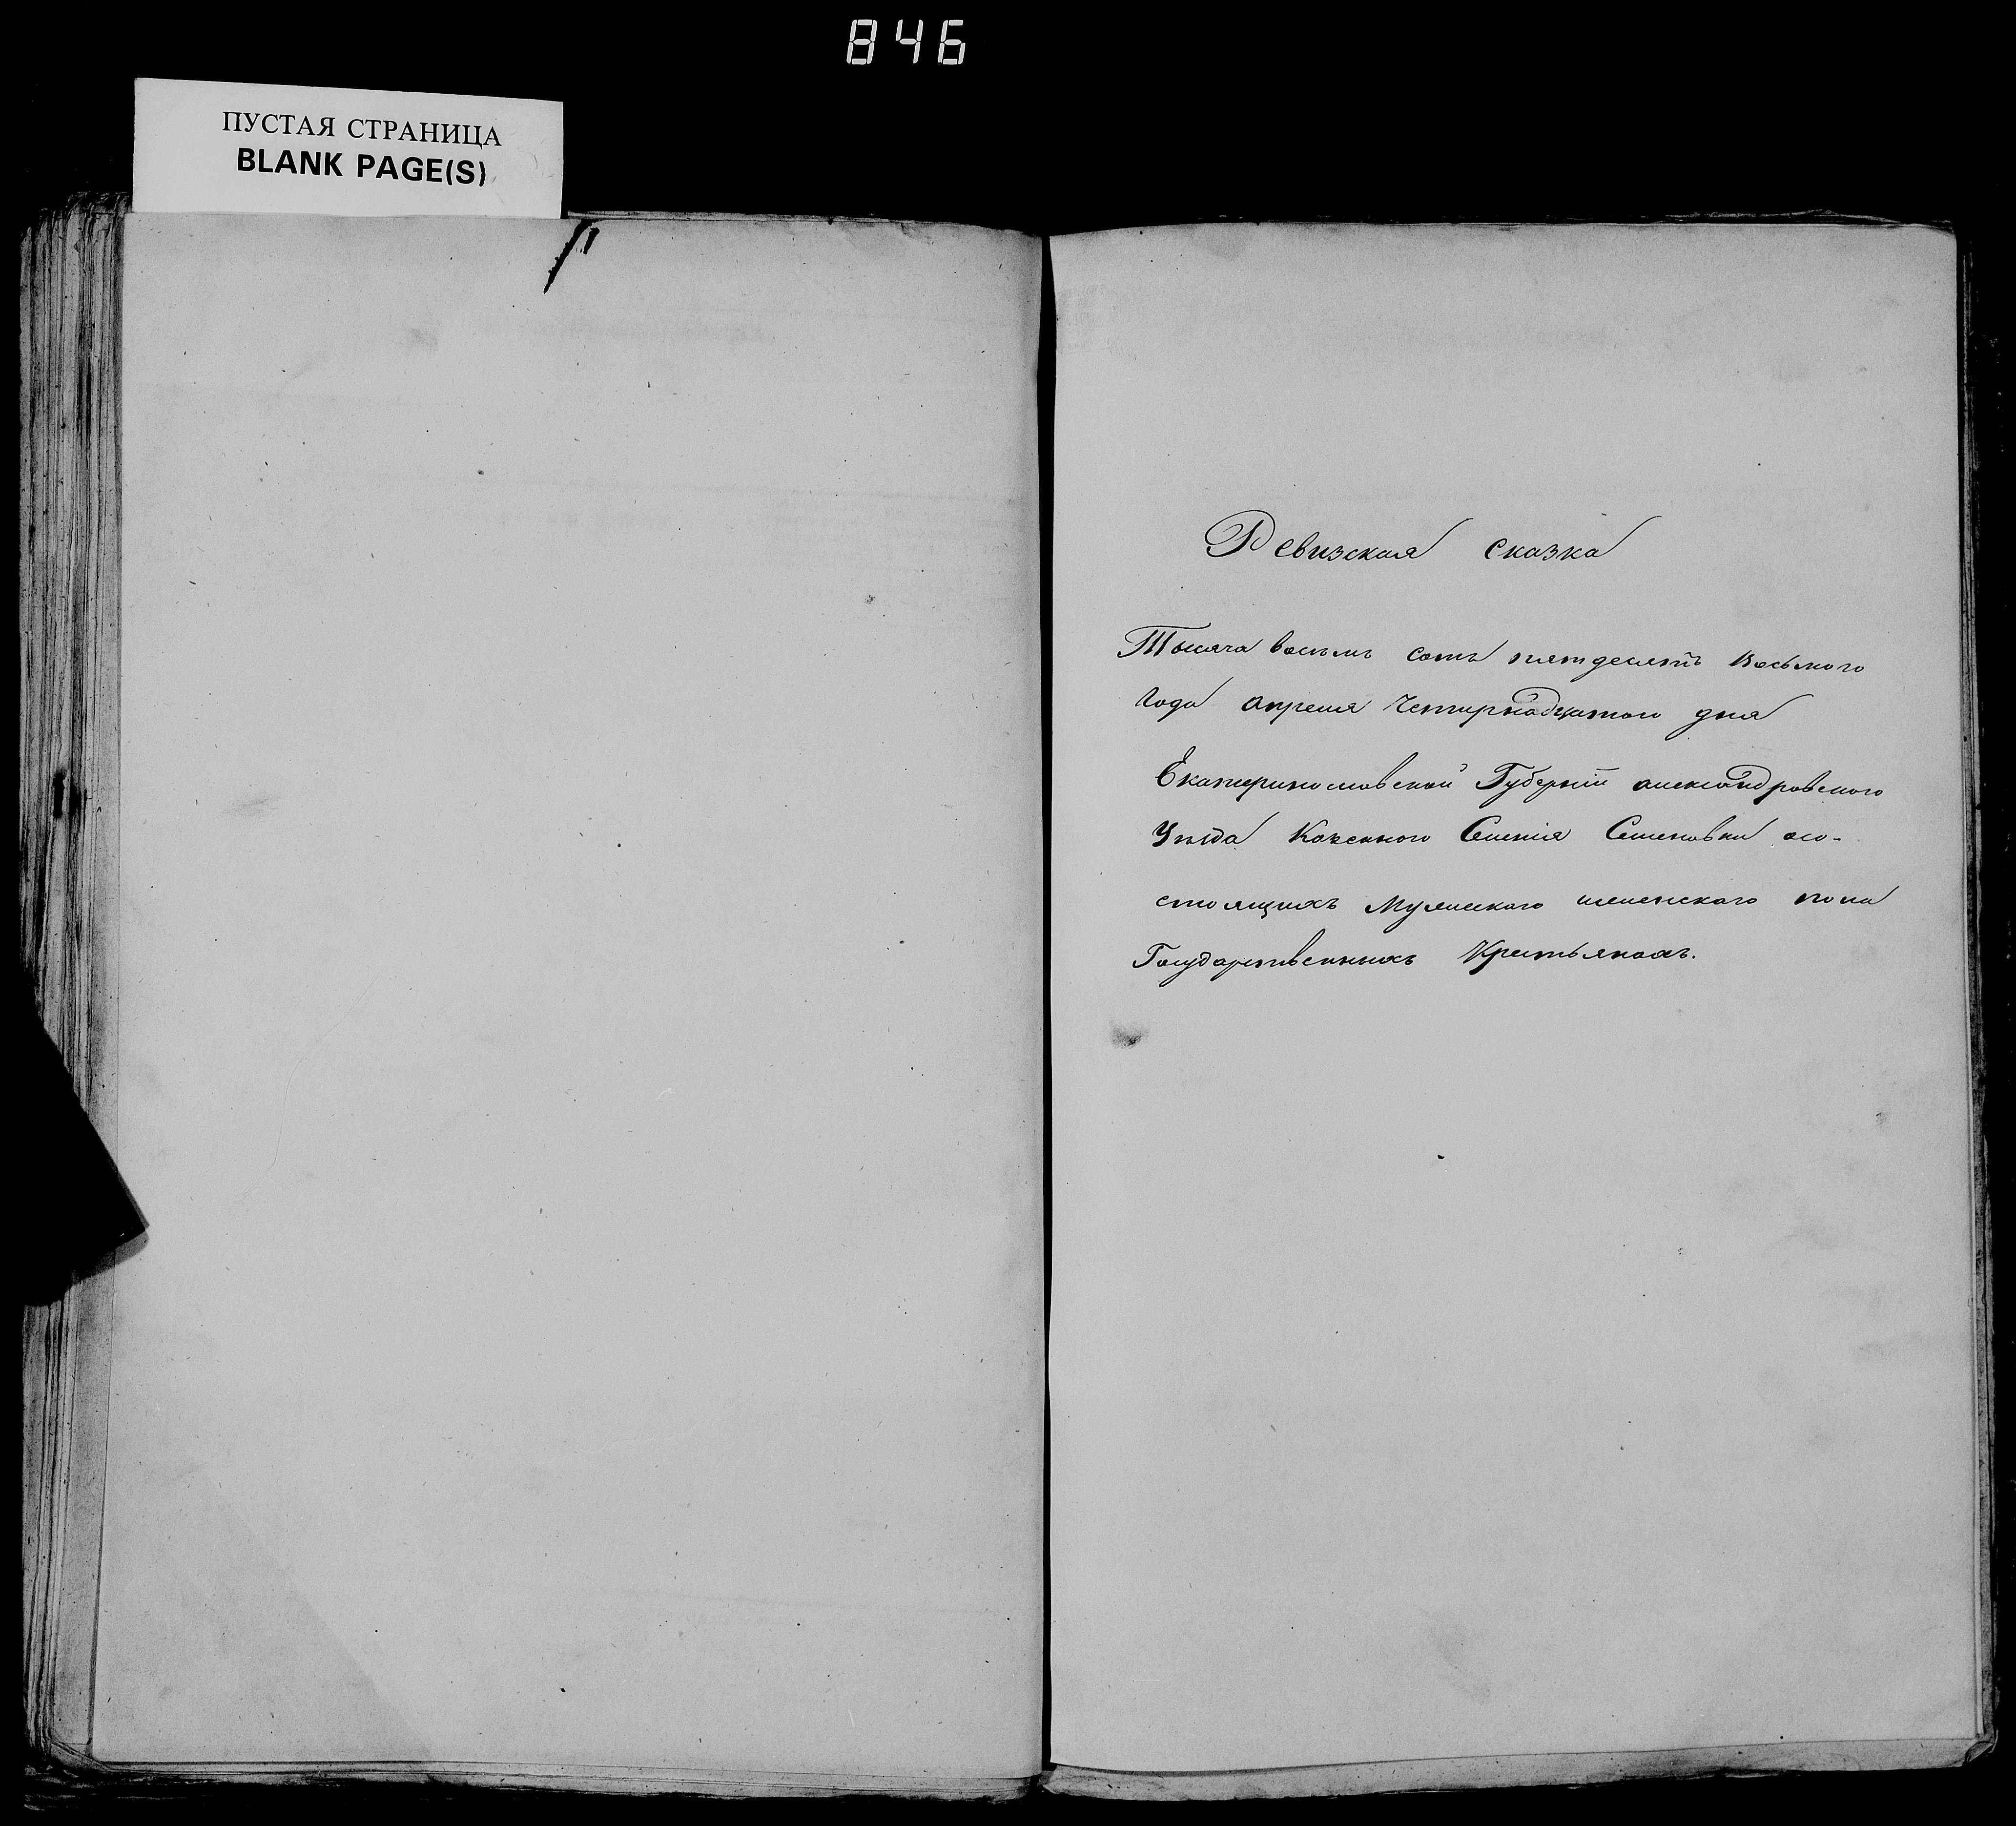 846
ПУСТАЯ СТРАНИЦА
BLANK PAGE(S)
Ревизская сказка
Тысяча восемь сотъ пятдесятъ Восьмого
Года апреля Четирнадцатого дня
Екатеринославской Губерніи александровского
Уѣзда Казенного Селенія Семеновки осо-
стоящихъ мужеского и женского пола
Государственныхъ Крестьянахъ.